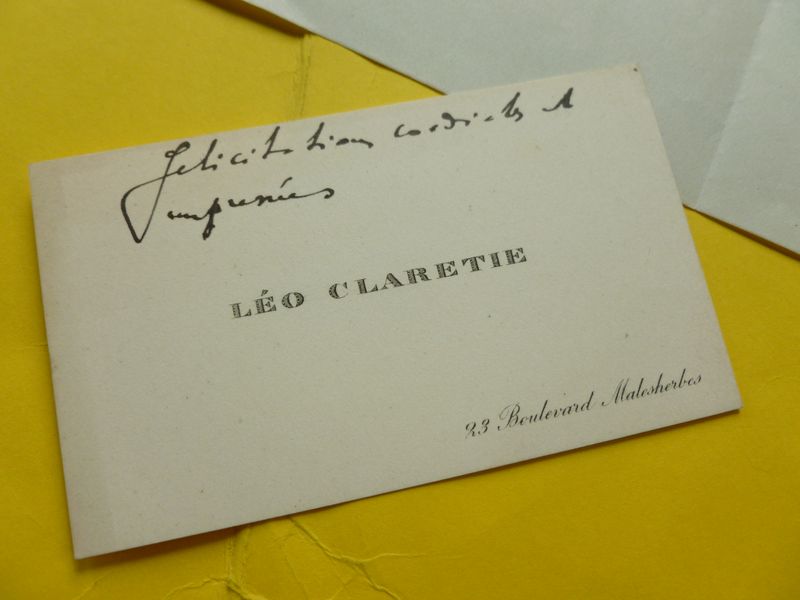 Felicitations cordiales et
empressées
LÉO CLARETIE
23 Boulevard Malesherbes